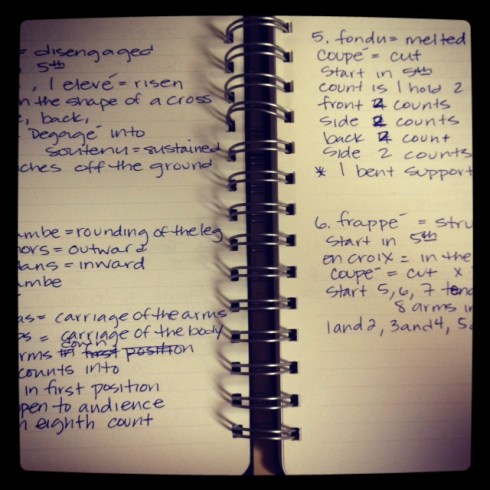 = disengaged
5th
, 1 elevé = risen
n the shape of a cross
, back,
Degagé into
soutenu = sustained
ches off the ground
ambe = rounding of the leg
ors = outward
ans = inward
ambe
as = carriage of the arms
s = carriage of the body
rms in first position
counts into
in first position
pen to audience
n eighth count
5. fondu = melted
coupé = cut
start in 5th
count is 1 hold 2
front 2 counts
side 2 counts
back 2 count
side 2 counts
* 1 bent support
6. frappé = stru
start in 5th
en croix = in the
coupé = cut x
start 5, 6, 7
8 arms in
1 and 2, 3 and 4, 5